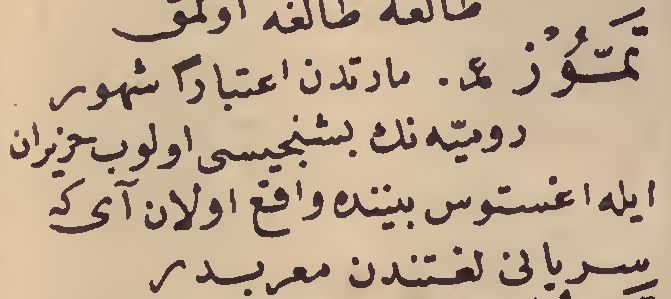 طالغه طالغه اولمق
تَمُّوْز ع. مارتدن اعتبارًا شهور
روميّه نك بشنجيسى اولوب حزيران
ايله اغستوس بيننده واقع اولان آى كه
سريانى لغتندن معربدر